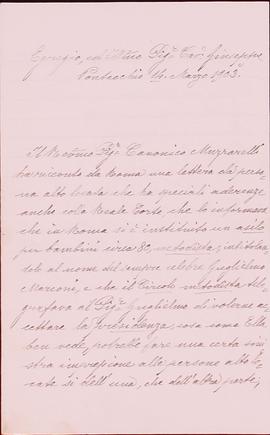 Egregio, ed Illmo Sigr Cavr Giuseppe
Pontecchio 14. Marzo 1903.
Il Revdmo Sigr Canonico Muzzarelli
ha ricevuto da Roma una lettera da perso-
na alto locata che ha speciali aderenze
anche colla Reale Corte, che lo informava
che in Roma si è instituito un asilo
per bambini circa 80, metodista, intitolan-
dolo al nome del sempre celebre Guglielmo
Marconi, e che il Circolo metodista tele-
grafava al Sigr Guglielmo di volerne ac-
cettare la Presidenza, cosa come Ella
ben vede, potrebbe fare una certa sini-
stra impressione alle persone alto lo-
cate sì dell'una, che dell'altra parte,